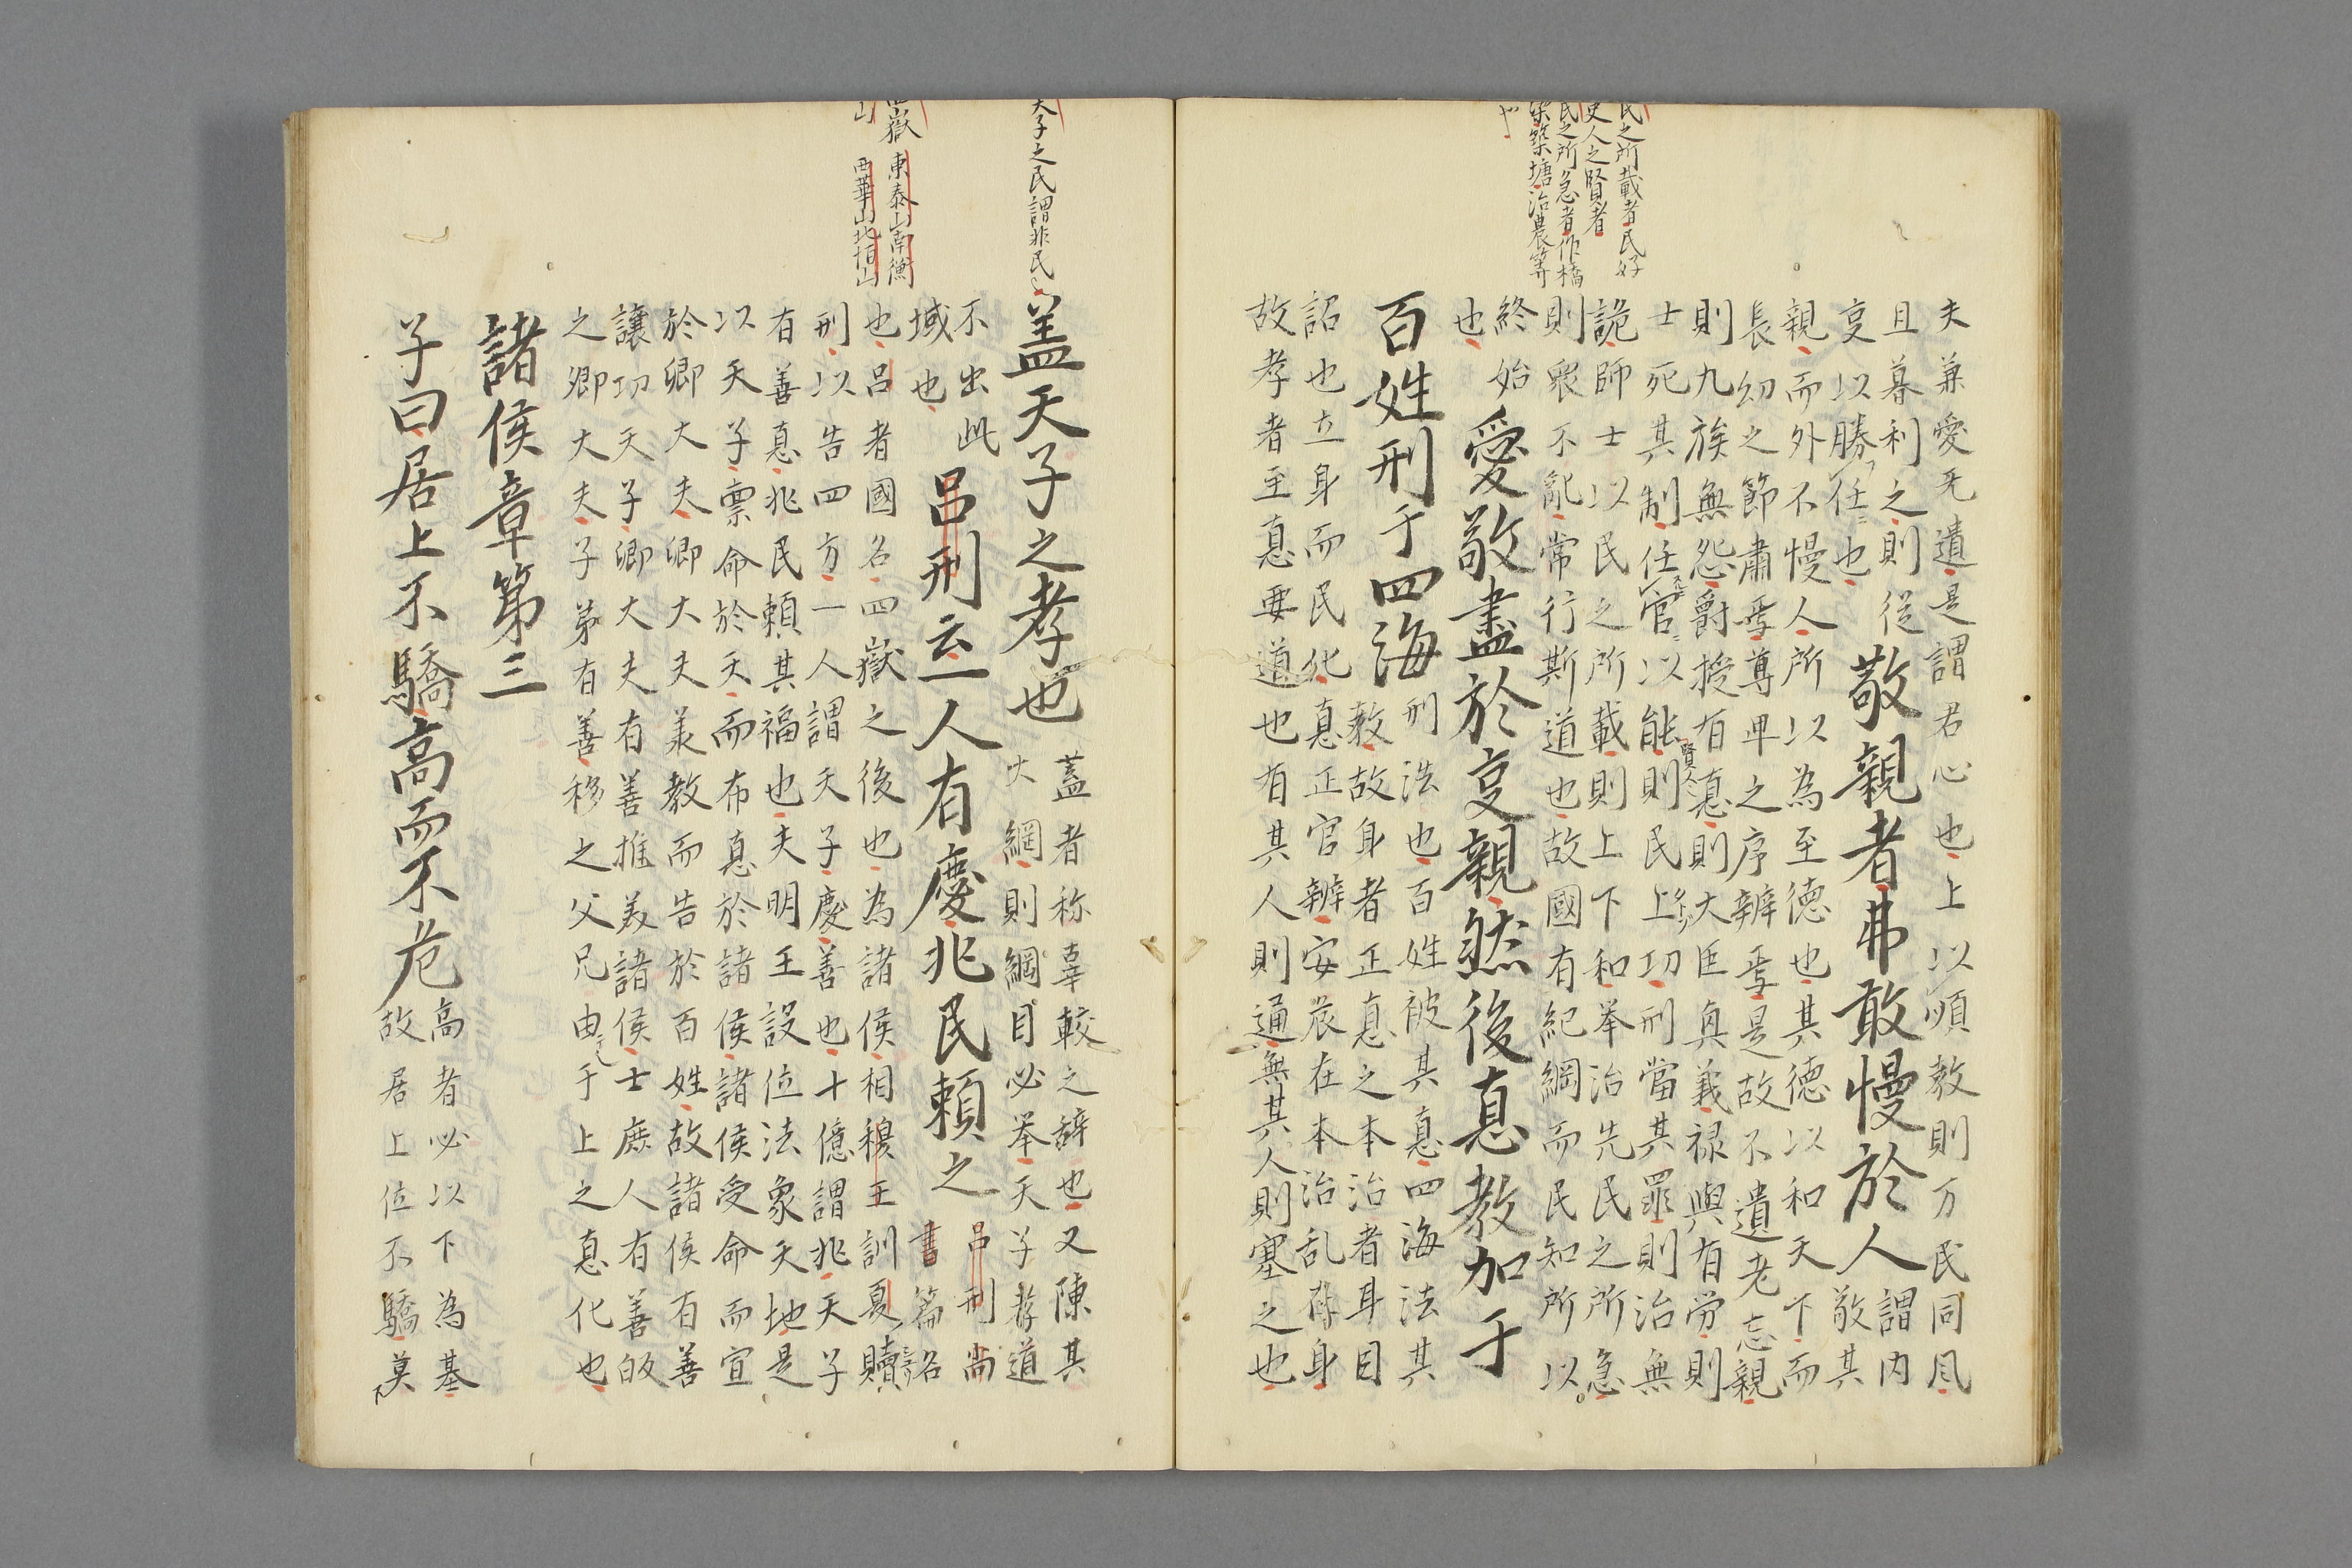 民之所載者民好
吏人之賢者
民之所急者作橋
梁築塘治農等
也
夫兼愛无遺是謂君心也上以順教則万民同風
旦暮利之則従
㕝以勝任也
敬親者弗敢慢於人
謂内
敬其
親而外不慢人所以為至徳也其徳以和天下而
長幼之節肅焉尊卑之序辨焉是故不遺老忘親
則九族無怨爵授有悳則大臣興義禄與有労則
士死其制任官以能則民上功刑當其罪則治無
詭師士以民之所載則上下和挙治先民之所急
則眾不亂常行斯道也故國有紀綱而民知所以
終始
也
愛敬盡於㕝親然後悳教加于
百姓刑于四海
刑法也百姓被其悳四海法其
教故身者正悳之本治者耳目
詔也立身而民化悳正官辨安危在本治乱存身
故孝者至悳要道也有其人則通無其人則塞之也
天子之民謂非民
四嶽 東泰山南衡
山 西華山北恒山
盖天子之孝也
蓋者称辜較之辞也又陳其
大綱則綱目必挙天子孝道
不出此
域也
呂刑云一人有慶兆民頼之
呂刑尚
書篇名
也呂者國名四嶽之後也為諸侯相穆王訓夏贖
刑以告四方一人謂天子慶善也十億謂兆天子
有善悳兆民頼其福也夫明王設位法象天地是
以天子稟命於天而布悳於諸侯諸侯受命而宣
於卿大夫卿大夫羙教而告於百姓故諸侯有善
讓功天子卿大夫有善推羙諸侯士庶人有善皈
之卿大夫子弟有善移之父兄由于上之悳化也
諸侯章第三
子曰居上不驕高而不危
高者必以下為基
故居上位不驕莫